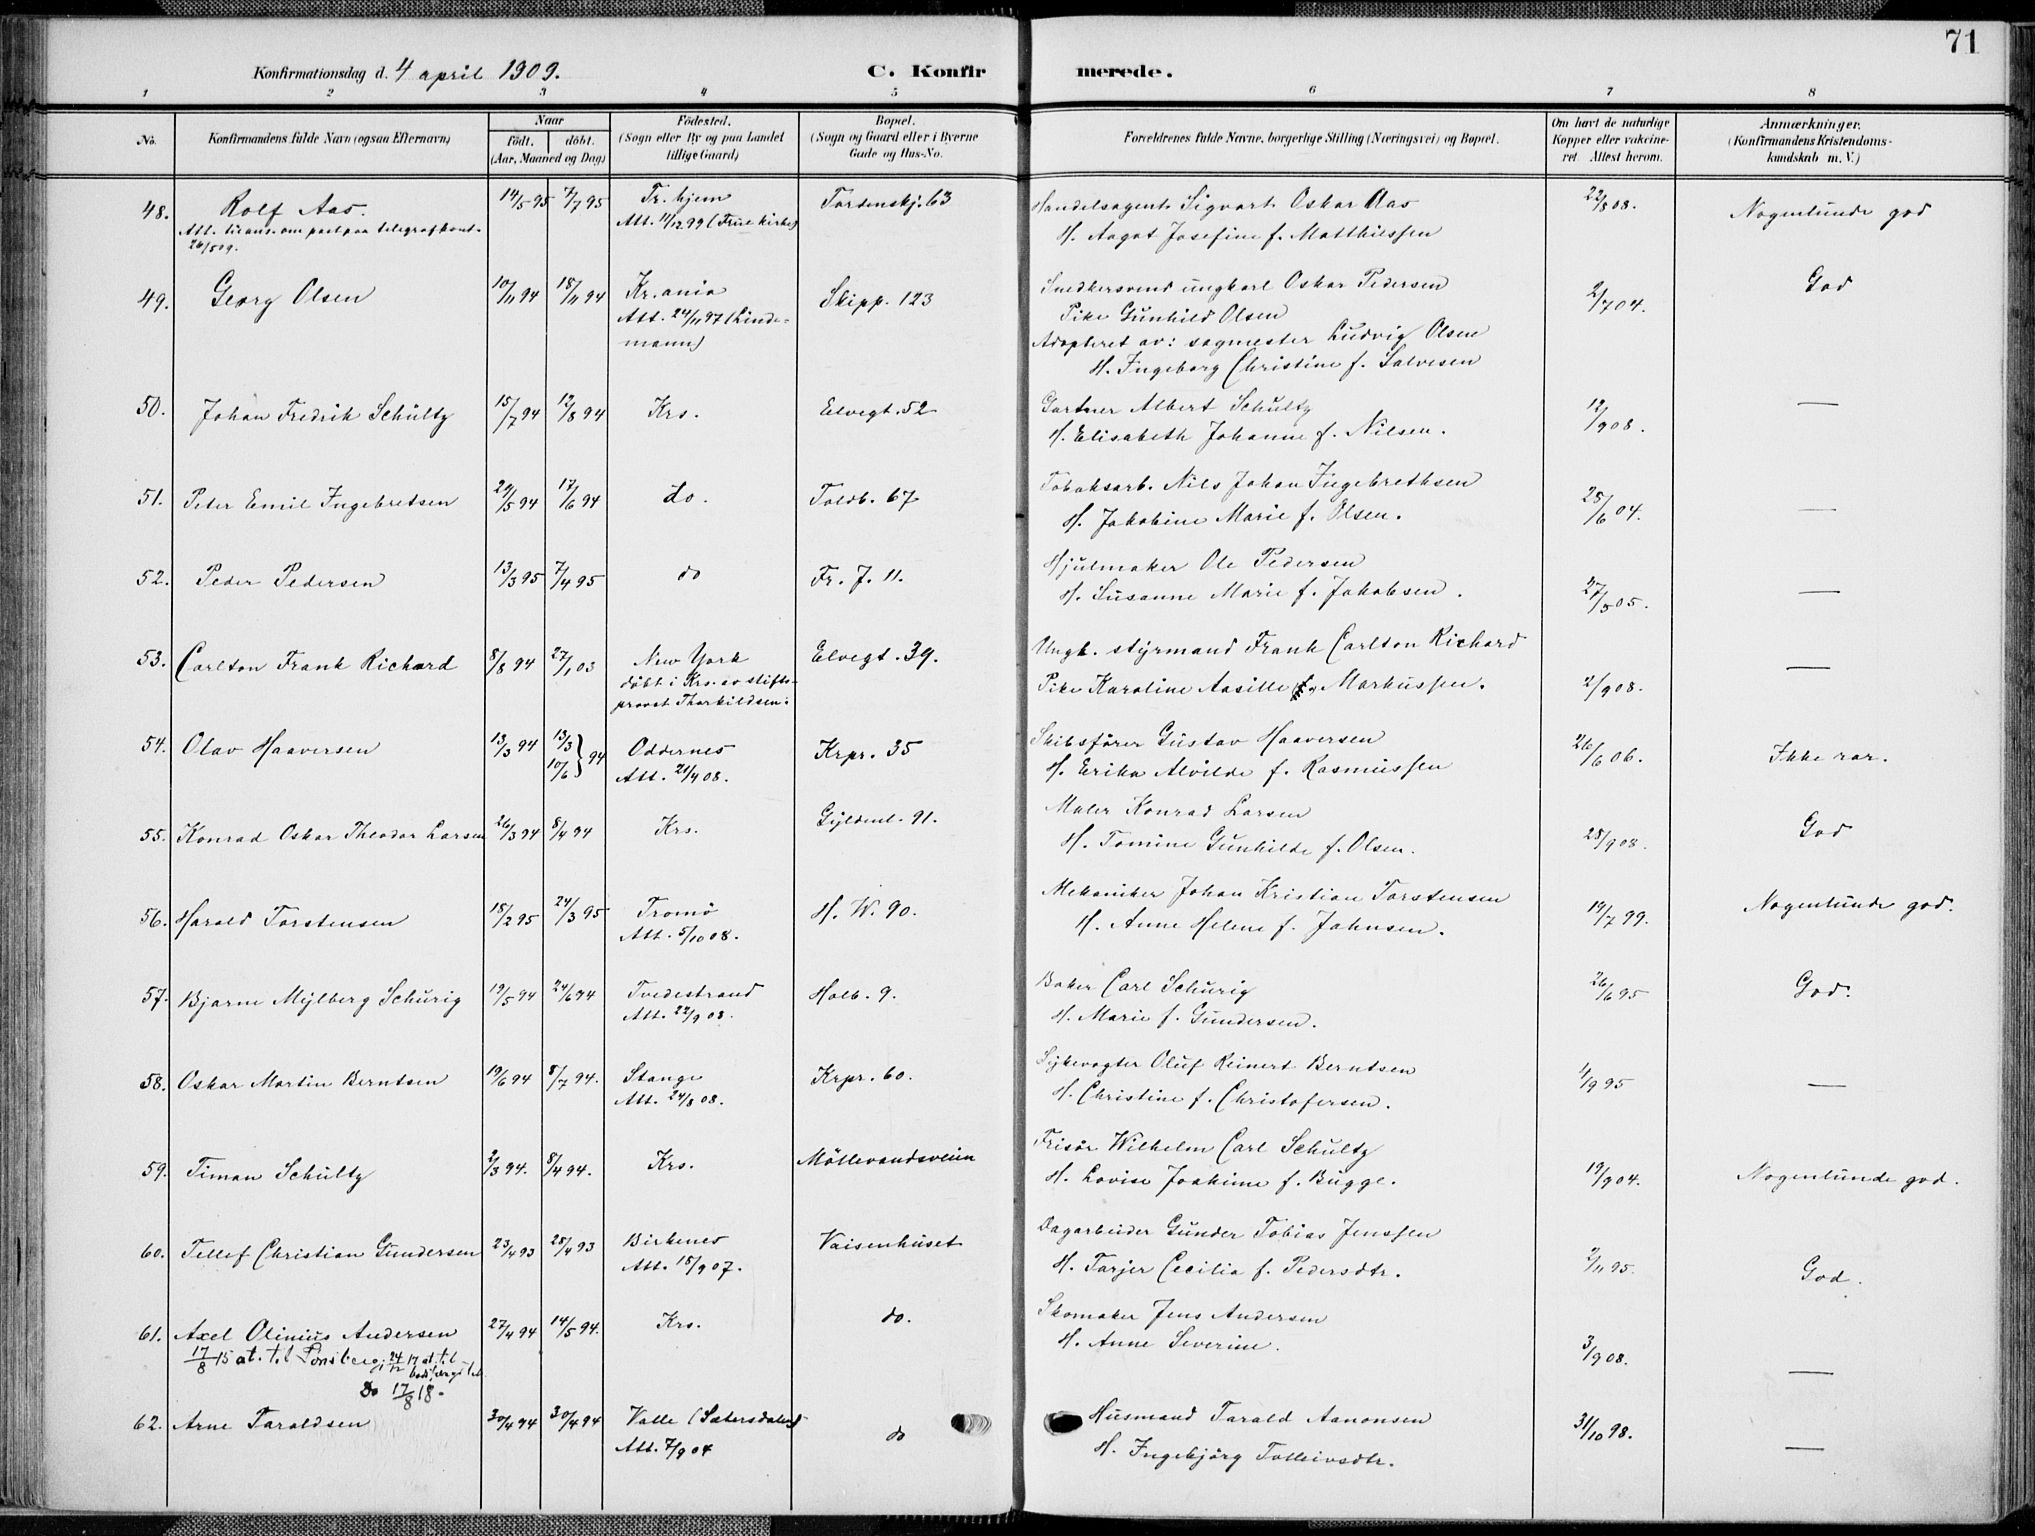 71
Konfirmationsdag d. 4 april 1909.
C. Konfirmerede.
1 2 3 4 5 6 7 8
No.
Konfirmandens fulde Navn (ogsaa Efternavn)
Naar
født, døbt.
(Aar, Maaned og Dag)
Fødested.
(Sogn eller By og paa Landet
tillige Gaard)
Bopæl.
(Sogn og Gaard eller i Byerne
Gade og Hus-No.
Forældrenes fulde Navne, borgerlige Stilling (Næringsvei) og Bopæl.
Om havt de naturlige
Kopper eller vakcine-
ret. Attest herom.
Anmærkninger.
(Konfirmandens Kristendoms-
kundskab m. V.)
48. Rolf Aas. 14/5 95 7/7 95 Tr.hjem Tordenskj. 63 Handelsagent Sigvart Oskar Aas 22/8 08. Nogenlunde god
om post paa telegrafkont. Att. 11/12 99 (Frue kirke) H. Aagot Josefine f. Matthiessen
26/5 09.
49. Georg Olsen 10/11 94 18/11 94 Kr.ania Skipp. 123 Snedkersvend ungkarl Oskar Pedersen 2/7 04. God
Att. 24/11 97 (Linde- Pike Gunhild Olsen
mann) Adopteret av: sagmester Ludvig Olsen
H. Ingeborg Christine f. Salvesen
50. Johan Fredrik Schultz 15/7 94 12/8 94 Krs. Elvegt. 52 Gartner Albert Schultz 12/9 08. —
H. Elisabeth Johanne f. Nilsen.
51. Peter Emil Ingebretsen 29/5 94 17/6 94 do. Toldb. 67 Tobaksarb. Nils Johan Ingebrethsen 25/6 04. —
H. Jakobine Marie f. Olsen.
52. Peder Pedersen 13/3 95 7/4 95 do Fr. J. 11. Hjulmaker Ole Pedersen 27/5 05. —
H. Susanne Marie f. Jakobsen.
53. Carlton Frank Richard 8/8 94 27/1 03 New York Elvegt. 39. Ungk. styrmand Frank Carlton Richard 2/9 08. —
døbt i Krs. av stifts-
provst Thorkildsen. Pike Karoline Aasille Markussen.
54. Olav Haaversen 13/3 94 13/3 10/6 } 94 Oddernes Krpr. 35 Skibsfører Gustav Haaversen 26/6 06. Ikke rar.
Att. 21/4 08. H. Erika Alvilde f. Rasmussen
55. Konrad Oskar Theodor Larsen 26/3 94 8/4 94 Krs. Gyldenl. 91. Maler Konrad Larsen 28/9 08. God
H. Tomine Gunhilde f. Olsen.
56. Harald Torstensen 18/2 95 24/3 95 Tromø H. W. 90. Mekaniker Johan Kristian Torstensen 19/7 99. Nogenlunde god.
Att. 5/10 08. H. Anne Helene f. Johnsen.
57. Bjarne Mylberg Schurig 19/5 94 24/6 94 Tvedestrand Holb. 9. Baker Carl Schurig 26/6 95 God.
Att. 22/9 08. H. Marie f. Gundersen.
58. Oskar Martin Berntsen 19/6 94 8/7 94. Stange Krpr. 60. Sykevogter Oluf Reinert Berntsen 4/9 95 —
Att. 24/8 08. H. Christine f. Christofersen.
59. Timan Schultz 2/3 94. 8/4 94. Krs. Møllevandsveien Frisør Wilhelm Carl Schultz 19/9 04. Nogenlunde god.
H. Lovise Joakime f. Bugge.
60. Tellef Christian Gundersen 23/4 93 28/4 93 Birkenes Vaisenhuset Dagarbeider Gunder Tobias Jenssen 2/11 95. God.
Att. 18/9 07. H. Tarjer Cecilia f. Pedersdtr.
61. Axel Olinius Andersen 27/4 94 14/5 94. Krs. do. Skomaker Jens Andersen 3/9 08. —
17/8 15 at. til Tønsberg, 24/12 17 at. til H. Anne Severine.
Do 17/8 18.
62. Arne Taraldsen 30/4 94 30/4 94 Valle (Sætersdalen) do Husmand Tarald Aanonsen 31/10 98. —
Att. 7/9 04 H. Ingebjørg Tolleivsdtr.